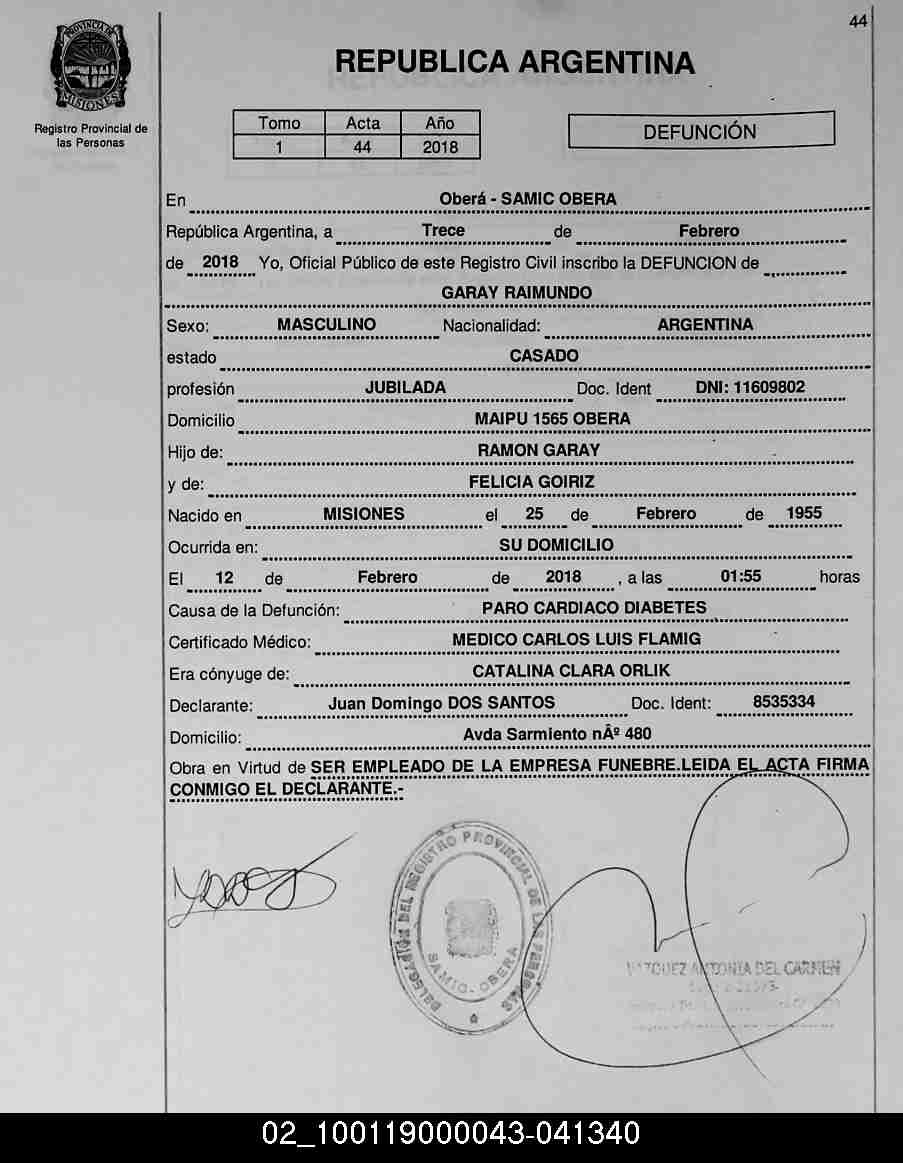 44
PROVINCIA DE
MISIONES
Registro Provincial de
las Personas
REPUBLICA ARGENTINA
Tomo Acta Año
1 44 2018
DEFUNCIÓN
En Oberá - SAMIC OBERA
República Argentina, a Trece de Febrero
de 2018 Yo, Oficial Público de este Registro Civil inscribo la DEFUNCION de
GARAY RAIMUNDO
Sexo: MASCULINO Nacionalidad: ARGENTINA
estado CASADO
profesión JUBILADA Doc. Ident DNI: 11609802
Domicilio MAIPU 1565 OBERA
Hijo de: RAMON GARAY
y de: FELICIA GOIRIZ
Nacido en MISIONES el 25 de Febrero de 1955
Ocurrida en: SU DOMICILIO
El 12 de Febrero de 2018 , a las 01:55 horas
Causa de la Defunción: PARO CARDIACO DIABETES
Certificado Médico: MEDICO CARLOS LUIS FLAMIG
Era cónyuge de: CATALINA CLARA ORLIK
Declarante: Juan Domingo DOS SANTOS Doc. Ident: 8535334
Domicilio: Avda Sarmiento nÂº 480
Obra en Virtud de SER EMPLEADO DE LA EMPRESA FUNEBRE.LEIDA EL ACTA FIRMA
CONMIGO EL DECLARANTE.-
DELEGACIÓN DEL REGISTRO PROVINCIAL DE LAS PERSONAS
SAMIC - OBERA
VAZQUEZ ANTONIA DEL CARMEN
02_100119000043-041340